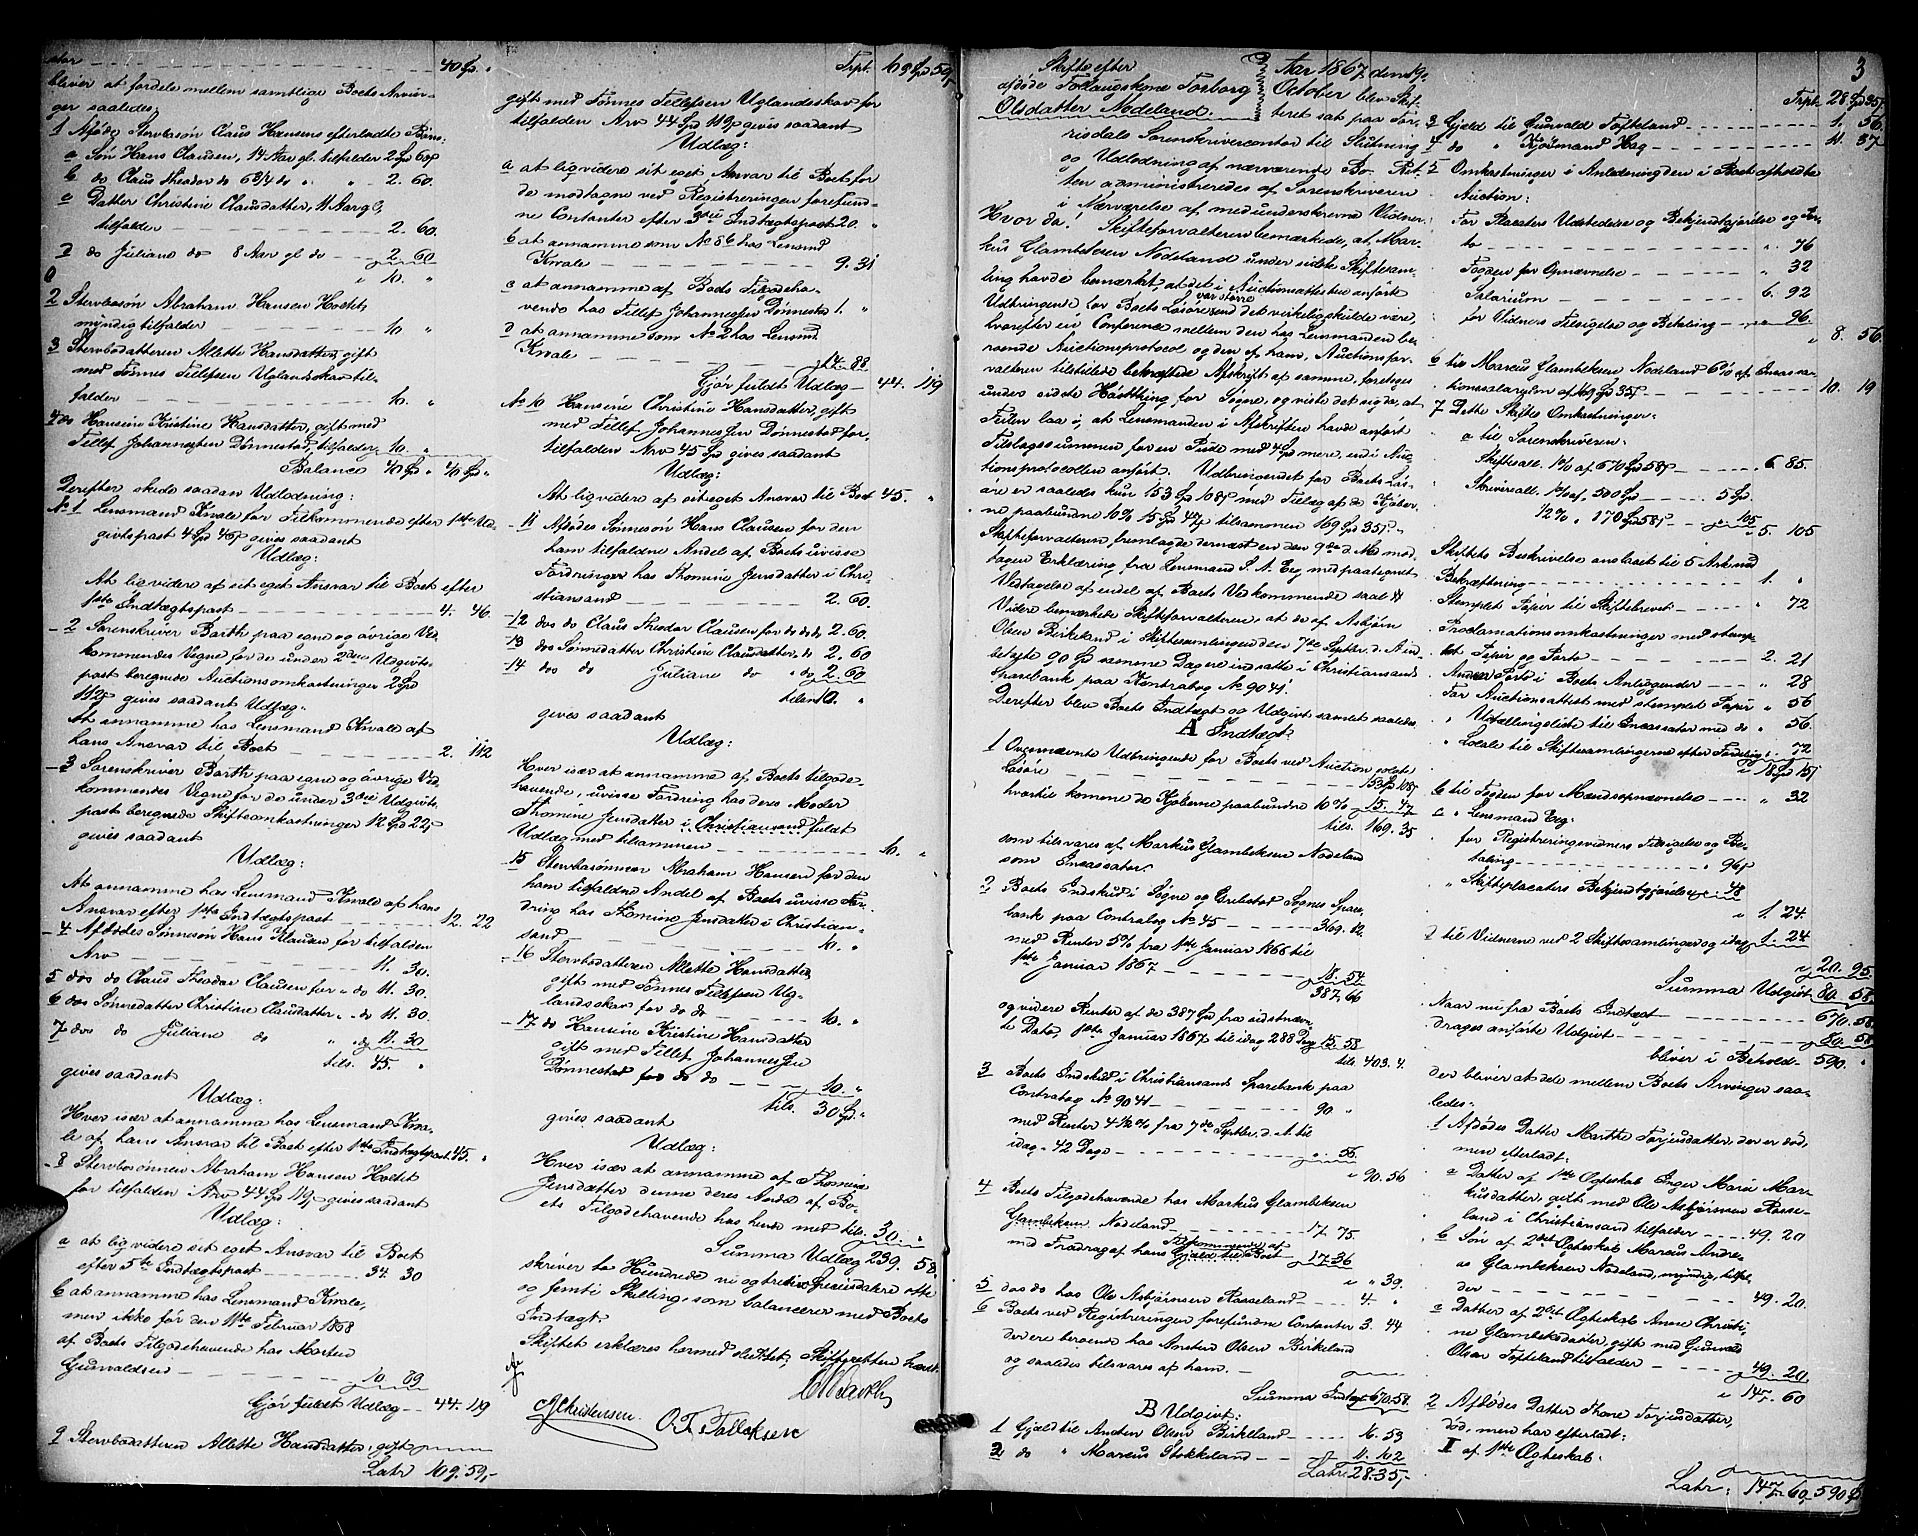 40 Spd.
bliver at fordele mellem samtlige Boets Arvin-
ger saaledes:
1 Afdøde Stervbosøn Claus Hansens efterladte Børn:
a Søn Hans Clausen, 14 Aar gl. tilfalder 2 Spd 60 s
b do Claus Theodor do 6 3/4 do " " 2. 60.
c Datter Christine Clausdatter, 11 Aar gl,
tilfalder 2. 60.
d do Juliane do 8 Aar gl do 2. 60
10. "
2 Stervbosøn Abraham Hansen Holtet,
myndig tilfalder 10 "
3 Stervbodatteren Allette Hansdatter, gift
med Tønnes Tellefsen Uglandsskar til-
falder 10. "
4 do Hansine Kristine Hansdatter, gift med
Tellef Johannessen Dønnestad, tilfalder 10. "
Balance 40 Spd " 40 Spd "
Derefter skede saadan Udlodning:
No 1 Lensmand Kvale for Tilkommende efter 1ste Ud-
givtspost 4 Spd 46 s gives saadant
Udlæg:
At ligvidere af sit eget Ansvar til Boet efter
1ste Indtægtspost 4. 46.
2 Sorenskriver Barth paa egne og øvrige Ved-
kommendes Vegne for de under 2den Udgivts-
post beregnede Auctionsomkostninger 2 Spd
112 s gives saadant Udlæg:
At annamme hos Lensmand Kvale af
hans Ansvar til Boet 2. 112
3 Sorenskriver Barth paa egne og øvrige Ved-
kommendes Vegne for de under 3die Udgivts-
post beregnede Skifteomkostninger 12 Spd 22 s
gives saadant
Udlæg:
At annamme hos Lensmand Kvale af hans
Ansvar efter 1ste Indtægtspost 12. 22
4 Afdødes Sønnesøn Hans Clausen for tilfalden
Arv 11. 30.
5 dos do Claus Theodor Clausen for " do 11. 30.
6 dos Sønnedatter Christine Clausdatter " do 11. 30
7 dos do Juliane do " do 11. 30
tils. 45. "
gives saadant
Udlæg:
Hver især at annamme hos Lensmand Kva-
le af hans Ansvar til Boet efter 1ste Indtægtspost 45. "
8 Stervbosønnen Abraham Hansen Holtet
for tilfalden Arv 44 Spd 119 s gives saadant
Udlæg:
a at ligvidere sit eget Ansvar til Boet
efter 5te Indtægtspost 34. 30
b at annamme hos Lensmand Kvale,
men ikke før den 11te Februar 1868
af Boets Tilgodehavende hos Morten
Gunvaldsen 10. 89
Gjør fuldt Udlæg 44. 119
9 Stervbodatteren Allette Hansdatter, gift
Latr 109. 59.
Trpt. 69 Spd 59 s
gift med Tønnes Tellefsen Uglandsskar for
tilfalden Arv 44 Spd 119 s gives saadant
Udlæg:
a at ligvidere sit eget Ansvar til Boet for
de modtagne ved Registreringen forefund-
ne Contanter efter 3die Indtægtspost 20. "
b at annamme som No 8b hos Lensmd
Kvale 9. 31
c at annamme af Boets Tilgodeha-
vende hos Tellef Johannessen Dønnestad 1. "
d at annamme som No 2 hos Lensmd
Kvale 14. 88
Gjør fuldt Udlæg 44. 119
No 10 Hansine Christine Hansdatter, gift
med Tellef Johannessen Dønnestad for
tilfalden Arv 45 Spd gives saadant
Udlæg:
At ligvidere af sit eget Ansvar til Boet 45. "
11 Afdødes Sønnesøn Hans Clausen for den
ham tilfaldne Andel af Boets uvisse
Fordringer hos Thomine Jensdatter i Chri-
stiansand 2. 60.
12 dos do Claus Theodor Clausen for do do do 2. 60.
13 dos Sønnedatter Christine Clausdatter " do 2. 60
14 dos do Juliane do " do 2. 60
tils 10. "
gives saadant
Udlæg:
Hver især at annamme af Boets Tilgode-
havende, uvisse Fordring hos deres Moder
Thomine Jensdatter i Christiansand fuldt
Udlæg med tilsammen 10. "
15 Stervbosønnen Abraham Hansen for den
ham tilfaldne Andel af Boets uvisse For-
dring hos Thomine Jensdatter i Christian-
sand 10. "
16 Stervbodatteren Allette Hansdatter,
gift med Tønnes Tellefsen Ug-
landsskar for do do 10. "
17 do Hansine Kristine Hansdatter
gift med Tellef Johannessen
Dønnestad for do do 10. "
tils. 30 Spd. "
gives saadant
Udlæg:
Hver især at annamme af Thomine
Jensdatter denne deres Andel af Bo-
ets Tilgodehavende hos hende med tils. 30. "
Summa Udlæg 239. 58.
skriver to Hundrede ni og tredive Speciedaler otte
og femti Skilling, som balancerer med Boets
Indtægt.
Skiftet erklæres hermed sluttet, Skifteretten hævet.
Barth
A Christensen O. T. Tellefsen
3
Skifte efter
afdøde Føllaugskone Torborg
Olsdatter Nodeland.
Aar 1867 den 19de
October blev Skif-
teret sat paa Tor-
risdals Sorenskrivercontor til Slutning
og Udlodning af nærværende Bo. Ret-
ten administreredes af Sorenskriveren
i Nærværelse af medunderskrevne Vidner.
Hvorda: Skifteforvalteren bemærkede, at Mar-
kus Glambeksen Nodeland under sidste Skiftesam-
ling havde bemærket, at det i Auctionsattesten anførte
Udbringende for Boets Løsøre var større end det virkelig skulde være,
hvorefter en Conference mellem den hos Lensmanden be-
roende Auctionsprotocol og den af ham, Auctionsfor-
valteren tilstillede bekræftede Afskrift af samme, foretoges
under sidste Høstthing for Søgne, og viste det sig da, at
Feilen laa i, at Lensmanden i Afskriften havde anført
Tilslagssummen for en Pude med 4 Spd mere, end i Auc-
tionsprotocollen anført. Udbringendet for Boets Løs-
øre er saaledes kun 153 Spd 108 s med Tillæg af de Kjøber-
ne paabundne 10% 15 Spd 47 s tilsammen 169 Spd 35 s.
Skifteforvalteren fremlagde dernæst en den 9de d. Md mod-
tagen Erklæring fra Lensmand S. A. Eeg med paategnet
Vedtagelse af endel af Boets Vedkommende saal
Videre bemærkede Skifteforvalteren, at de af Asbjørn
Olsen Birkeland i Skiftesamlingen den 7de Septbr. d. A. ind-
betalte 90 Spd samme Dag ere indsatte i Christiansands
Sparebank paa Kontrabog No 9041.
Derefter blev Boets Indtægt og Udgivt samlet saaledes:
A Indtægt:
1 Ovennævnte Udbringende for Boets ved Auction solgte
Løsøre 153 Spd 108 s
hvortil komme de Kjøberne paabundne 10% 15. 47
tils. 169. 35
som tilsvares af Markus Glambeksen Nodeland
som Incassator.
2 Boets Indskud i Søgne og Greibstad Sognes Spare-
bank paa Contrabog No 45 369. 12.
med Renter 5% fra 1ste Januar 1866 til
1ste Januar 1867 18. 54
387. 66
og videre Renter af de 387 Spd fra sidstnævn-
te Dato, 1ste Januar 1867 til idag 288 Dage 15. 58
tils. 403. 4.
3 Boets Indskud i Christiansands Sparebank paa
Contrabog No 9041 90 "
med Renter 4 1/2% fra 7de Septbr. d. A. til
idag - 42 Dage 56
" 90. 56
4 Boets Tilgodehavende hos Markus Glambeksen
Glambeksen Nodeland 17. 75.
med Fradrag af hans Tilkommende af Gjæld til Boet 17. 36
" 39.
5 dos do hos Ole Asbjørnsen Rosseland 4. "
6 Boets ved Registreringen forefundne Contanter 3. 44
der ere beroende hos Anders Olsen Birkeland
og saaledes tilsvares af ham.
Summa Indtægt 670. 58.
B Udgivt:
1 Gjæld til Anders Olsen Birkeland 16. 53
2 do " Marcus Stokkeland 11. 102
Latr 28. 35.
Trpt. 28 Spd 35 s
3 Gjæld til Gunvald Tofteland 1. 56.
4 do " Kjøbmand Hag 4. 37
5 Omkostninger i Anledning den i Boet afholdte
Auction:
For Placaters Udstedelse og Bekjendtgjørelse og Por-
to " 76
Fogden for Opnævnelse " 32
Salarium 6. 92
for Vidners Tilsigelse og Betaling " 96.
" 8. 56.
6 til Marcus Glambeksen Nodeland 6% af Incassa-
tionssalaren af 169 Spd 35 s 10. 19
7 Dette Skiftes Omkostninger:
a til Sorenskriveren:
Skiftesall. 1% af 670 Spd 58 s 6. 85.
Skriversall. 1% af 500 Spd 5 Spd.
1/2% " 170 Spd 58 s " 105
5. 105
Skiftets Beskrivelse anslaaet til 5 Ark med
Bekræftning 1. "
Stemplet Papir til Skiftebrevet " 72
Proclamationsomkostninger med stemp-
let Papir og Porto 2. 21
Anden Porto i Boets Anliggender " 28
For Auctionsattest med stemplet Papir " 56
" Udfællingsliste til Incassator med do " 56.
" Locale til Skiftesamlingerne efter Fordeling " 72
18 Spd 15 s
b til Fogden for Mændsopnævnelse " 32
c " Lensmand Eeg:
for Registreringsvidners Tilsigelse og Be-
taling " 96 s
" Skifteplacaters Bekjendtgjørelse " 48
1. 24.
d til Vidnerne ved 2 Skiftesamlinger og idag 1. 24
20. 95.
Summa Udgivt 80. 58.
Naar nu fra Boets Indtægt 670. 58.
drages anførte Udgivt 80. 58
bliver i Behold 590. "
der bliver at dele mellem Boets Arvinger saa-
ledes:
1 Afdødes Datter Marthe Torjusdatter, der er død,
men efterladt:
a Datter af 1ste Ægteskab Inger Marie Mar-
kusdatter, gift med Ole Asbjørnsen Rosse-
land i Christiansand tilfalder 49. 20
b Søn af 2det Ægteskab Marcus Andre-
as Glambeksen Nodeland, myndig, tilfal-
der 49. 20.
c Datter af 2det Ægteskab Anne Christi-
ne Glambeksdatter, gift med Gunvald
Olsen Tofteland tilfalder 49. 20.
147. 60
2 Afdødes Datter Thone Torjusdatter,
død, men har efterladt:
I af 1ste Ægteskab.
Latr: 147. 60. 590 Spd